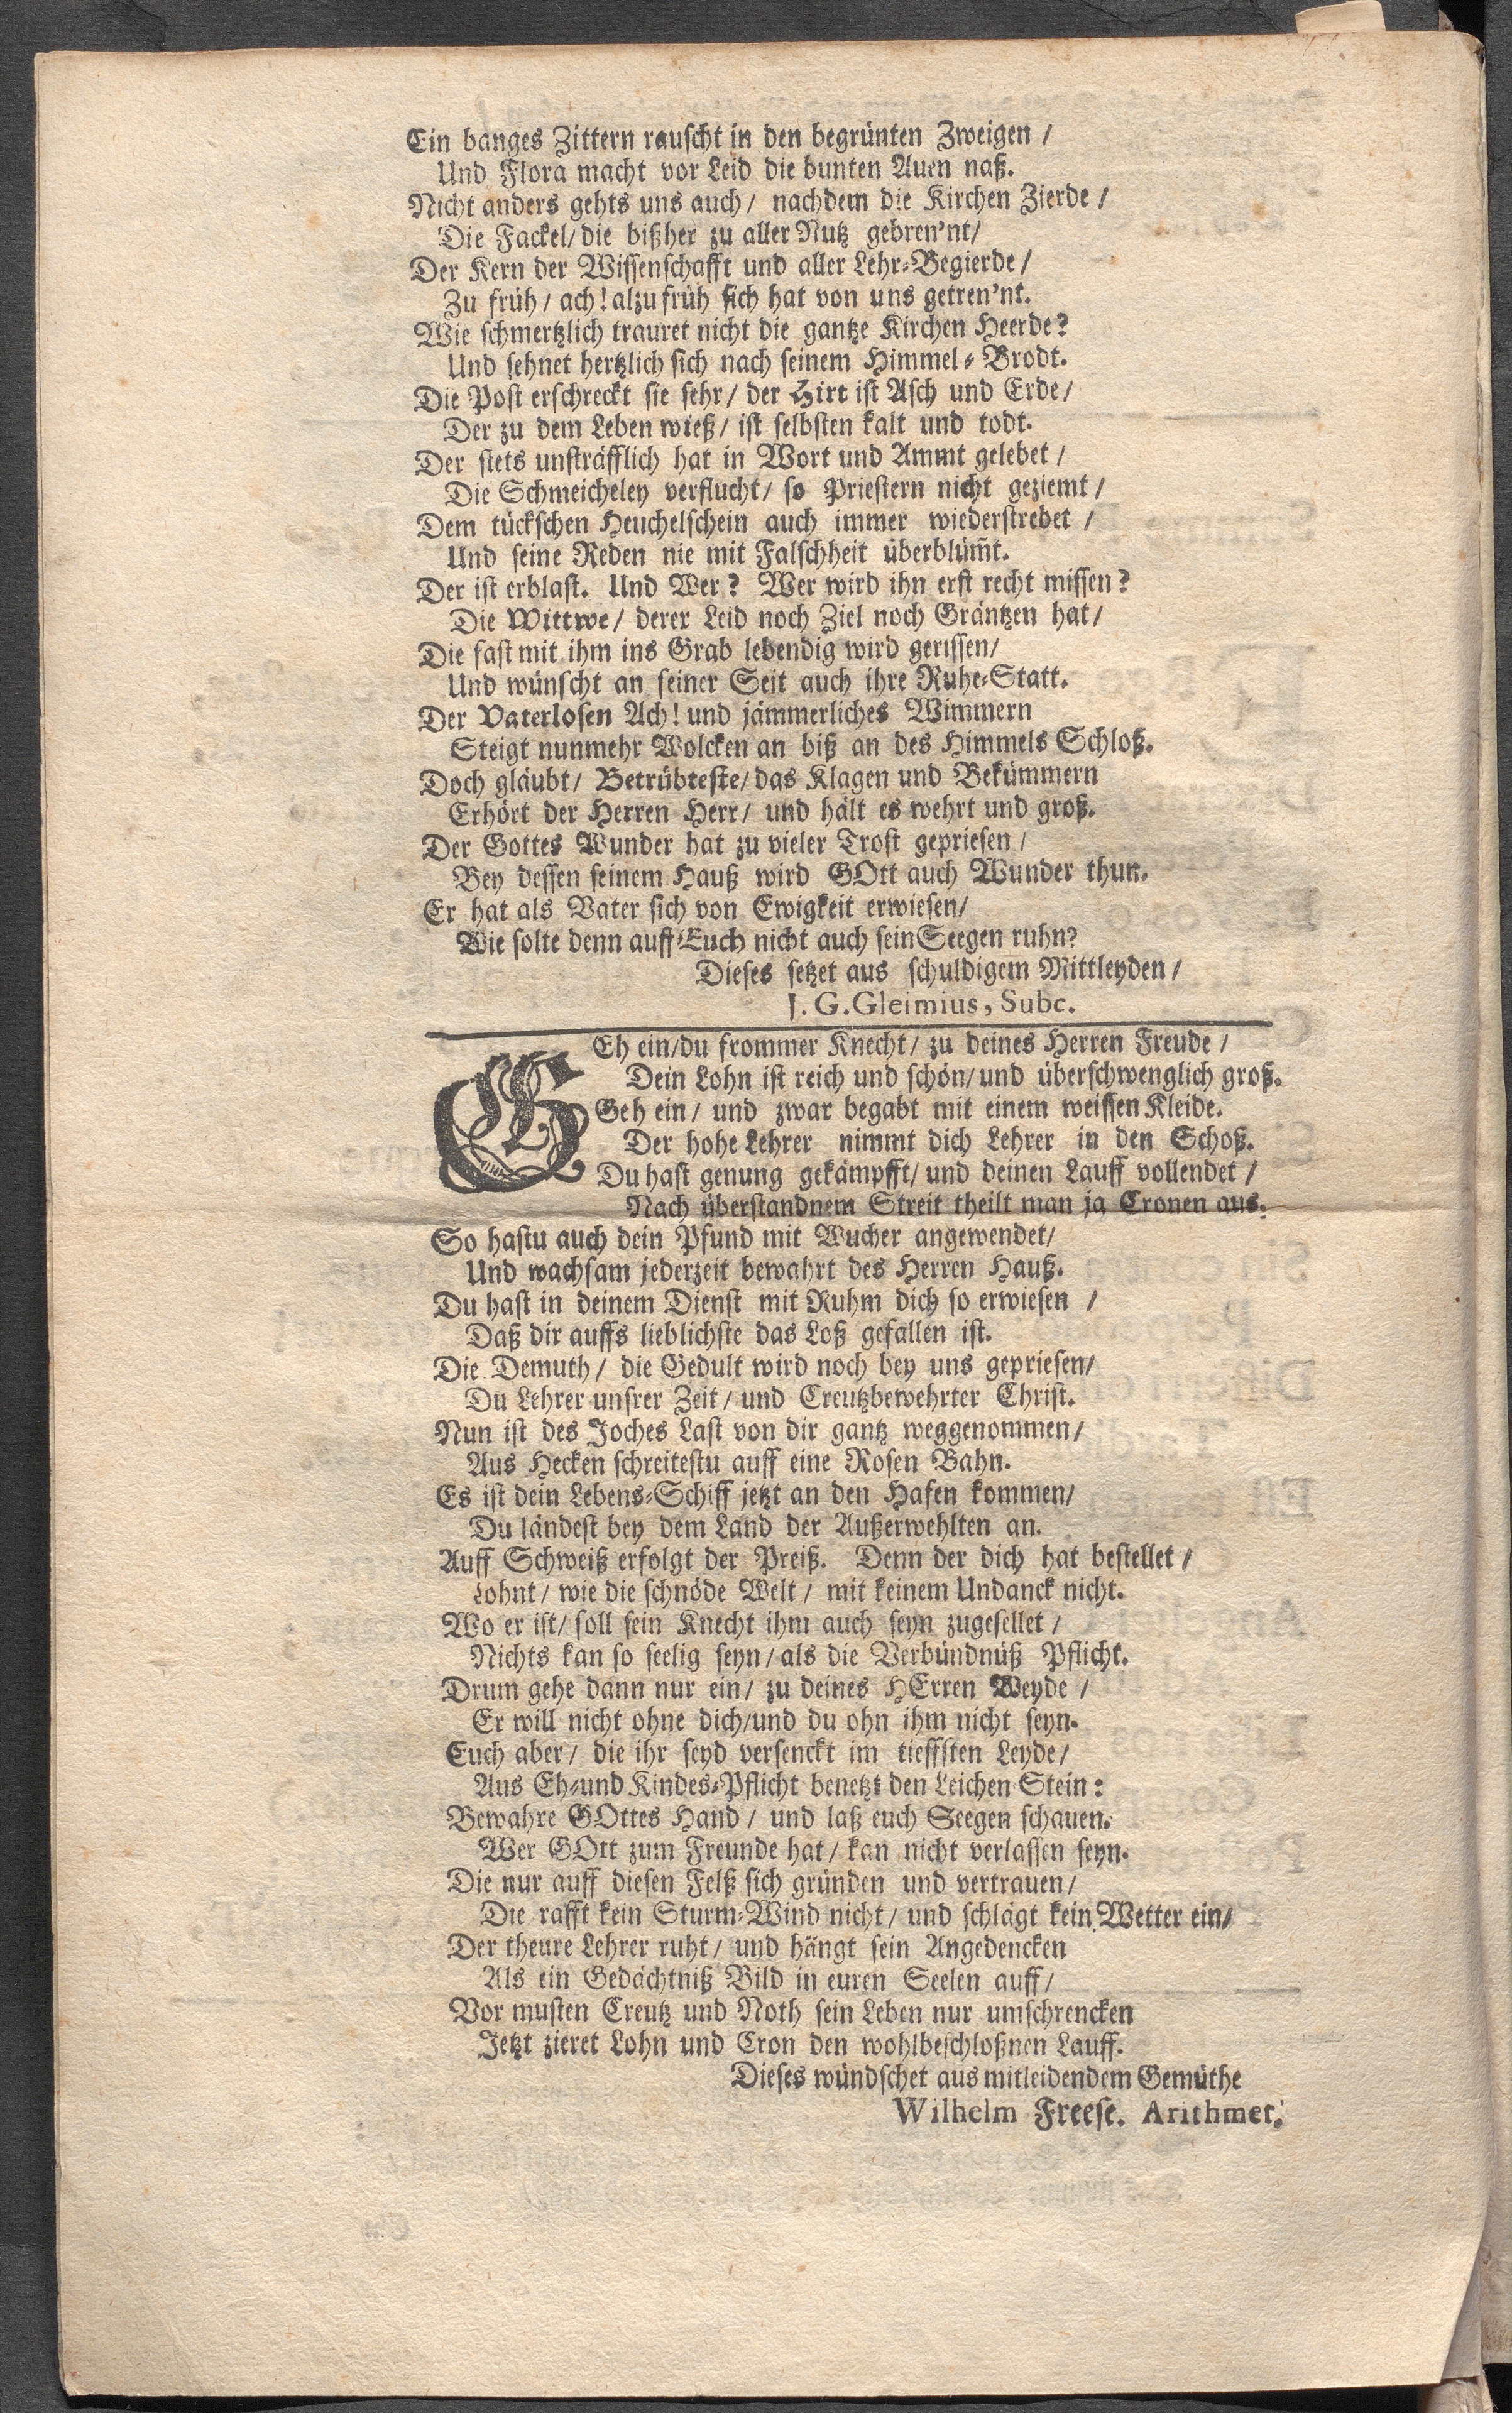 Ein banges Zittern rauscht in den begrünten Zweigen /
Und Flora macht vor Leid die bunten Auen naß.
Nicht anders gehts uns auch / nachdem die Kirchen Zierde /
Die Fackel / die bißher zu aller Nutz gebren'nt /
Der Kern der Wissenschafft und aller Lehr-Begierde /
Zu früh / ach! alzu früh sich hat von uns getren'nt.
Wie schmertzlich trauret nicht die gantze Kirchen Heerde?
Und sehnet hertzlich sich nach seinem Himmel-Brodt.
Die Post erschreckt sie sehr / der Hirt ist Asch und Erde /
Der zu dem Leben wieß / ist selbsten kalt und todt.
Der stets unsträfflich hat in Wort und Ammt gelebet /
Die Schmeicheley verflucht / so Priestern nicht geziemt /
Dem tückschen Heuchelschein auch immer wiederstrebet /
Und seine Reden nie mit Falschheit überblüm̄t.
Der ist erblast. Und Wer? Wer wird ihn erst recht missen?
Die Wittwe / derer Leid noch Ziel noch Gräntzen hat /
Die fast mit ihm ins Grab lebendig wird gerissen /
Und wünscht an seiner Seit auch ihre Ruhe-Statt.
Der Vaterlosen Ach! und jämmerliches Wimmern
Steigt nunmehr Wolcken an biß an des Himmels Schloß.
Doch gläubt / Betrübteste / das Klagen und Bekümmern
Erhört der Herren Herr / und hält es wehrt und groß.
Der Gottes Wunder hat zu vieler Trost gepriesen /
Bey dessen seinem Hauß wird GOtt auch Wunder thun.
Er hat als Vater sich von Ewigkeit erwiesen /
Wie solte denn auff Euch nicht auch sein Seegen ruhn?
Dieses setzet aus schuldigem Mittleyden /
J. G. Gleimius, Subc.
GEh ein / du frommer Knecht / zu deines Herren Freude /
Dein Lohn ist reich und schön / und überschwenglich groß.
Geh ein / und zwar begabt mit einem weissen Kleide.
Der hohe Lehrer nimmt dich Lehrer in den Schoß.
Du hast genung gekämpfft / und deinen Lauff vollendet /
Nach überstandnem Streit theilt man ja Cronen aus.
So hastu auch dein Pfund mit Wucher angewendet /
Und wachsam jederzeit bewahrt des Herren Hauß.
Du hast in deinem Dienst mit Ruhm dich so erwiesen /
Daß dir auffs lieblichste das Loß gefallen ist.
Die Demuth / die Gedult wird noch bey uns gepriesen /
Du Lehrer unsrer Zeit / und Creutzbewehrter Christ.
Nun ist des Joches Last von dir gantz weggenommen /
Aus Hecken schreitestu auff eine Rosen Bahn.
Es ist dein Lebens-Schiff jetzt an den Hafen kommen /
Du ländest bey dem Land der Außerwehlten an.
Auff Schweiß erfolgt der Preiß. Denn der dich hat bestellet /
Lohnt / wie die schnöde Welt / mit keinem Undanck nicht.
Wo er ist / soll sein Knecht ihm auch seyn zugesellet /
Nichts kan so seelig seyn / als die Verbündnüß Pflicht.
Drum gehe dann nur ein / zu deines HErren Weyde /
Er will nicht ohne dich / und du ohn ihm nicht seyn.
Euch aber / die ihr seyd versenckt im tieffsten Leyde /
Aus Eh- und Kindes-Pflicht benetzt den Leichen Stein:
Bewahre GOttes Hand / und laß euch Seegen schauen.
Wer GOtt zum Freunde hat / kan nicht verlassen seyn.
Die nur auff diesen Felß sich gründen und vertrauen /
Die rafft kein Sturm-Wind nicht / und schlägt kein Wetter ein /
Der theure Lehrer ruht / und hängt sein Angedencken
Als ein Gedächtniß Bild in euren Seelen auff /
Vor musten Creutz und Noth sein Leben nur umschrencken
Jetzt zieret Lohn und Cron den wohlbeschloßnen Lauff.
Dieses wündschet aus mitleidendem Gemüthe
Wilhelm Freese. Arithmet.